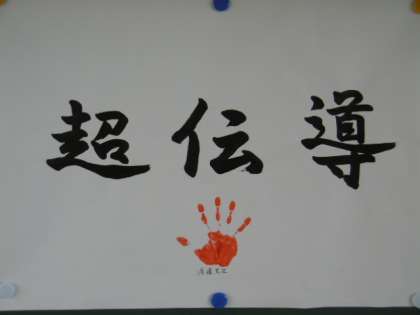 超伝導